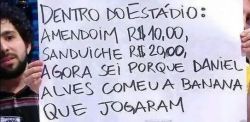 DENTRO DO ESTÁDIO:
AMENDOIM R$10,00,
SANDUICHE R$20,00,
AGORA SEI PORQUE DANIEL
ALVES COMEU A BANANA
QUE JOGARAM